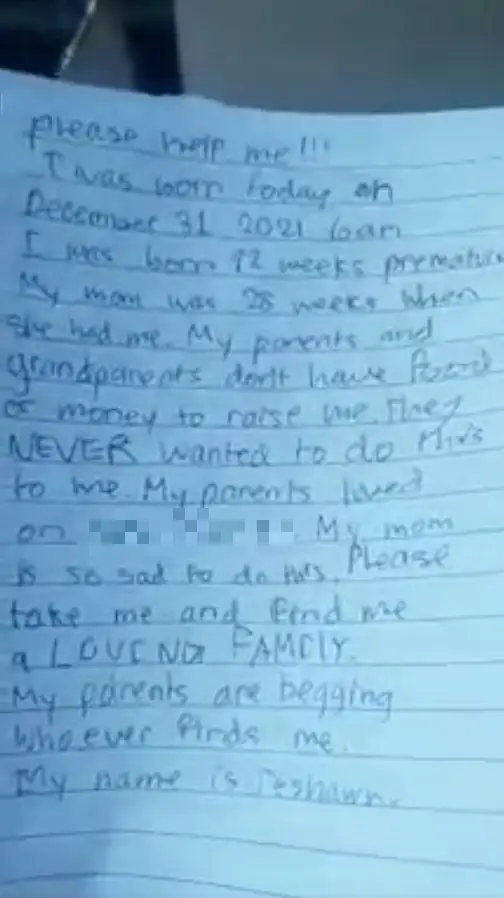 please help me!!!
I was born today on
December 31 2021 6am
I was born 12 weeks premature
My mom was 28 weeks when
she had me. My parents and
grandparents don't have food
or money to raise me. They
NEVER wanted to do this
to me. My parents lived
on
My mom
is so sad to do this. Please
take me and find me
a LOVING FAMELY.
My parents are begging
whoever finds me.
My name is Teshawn.